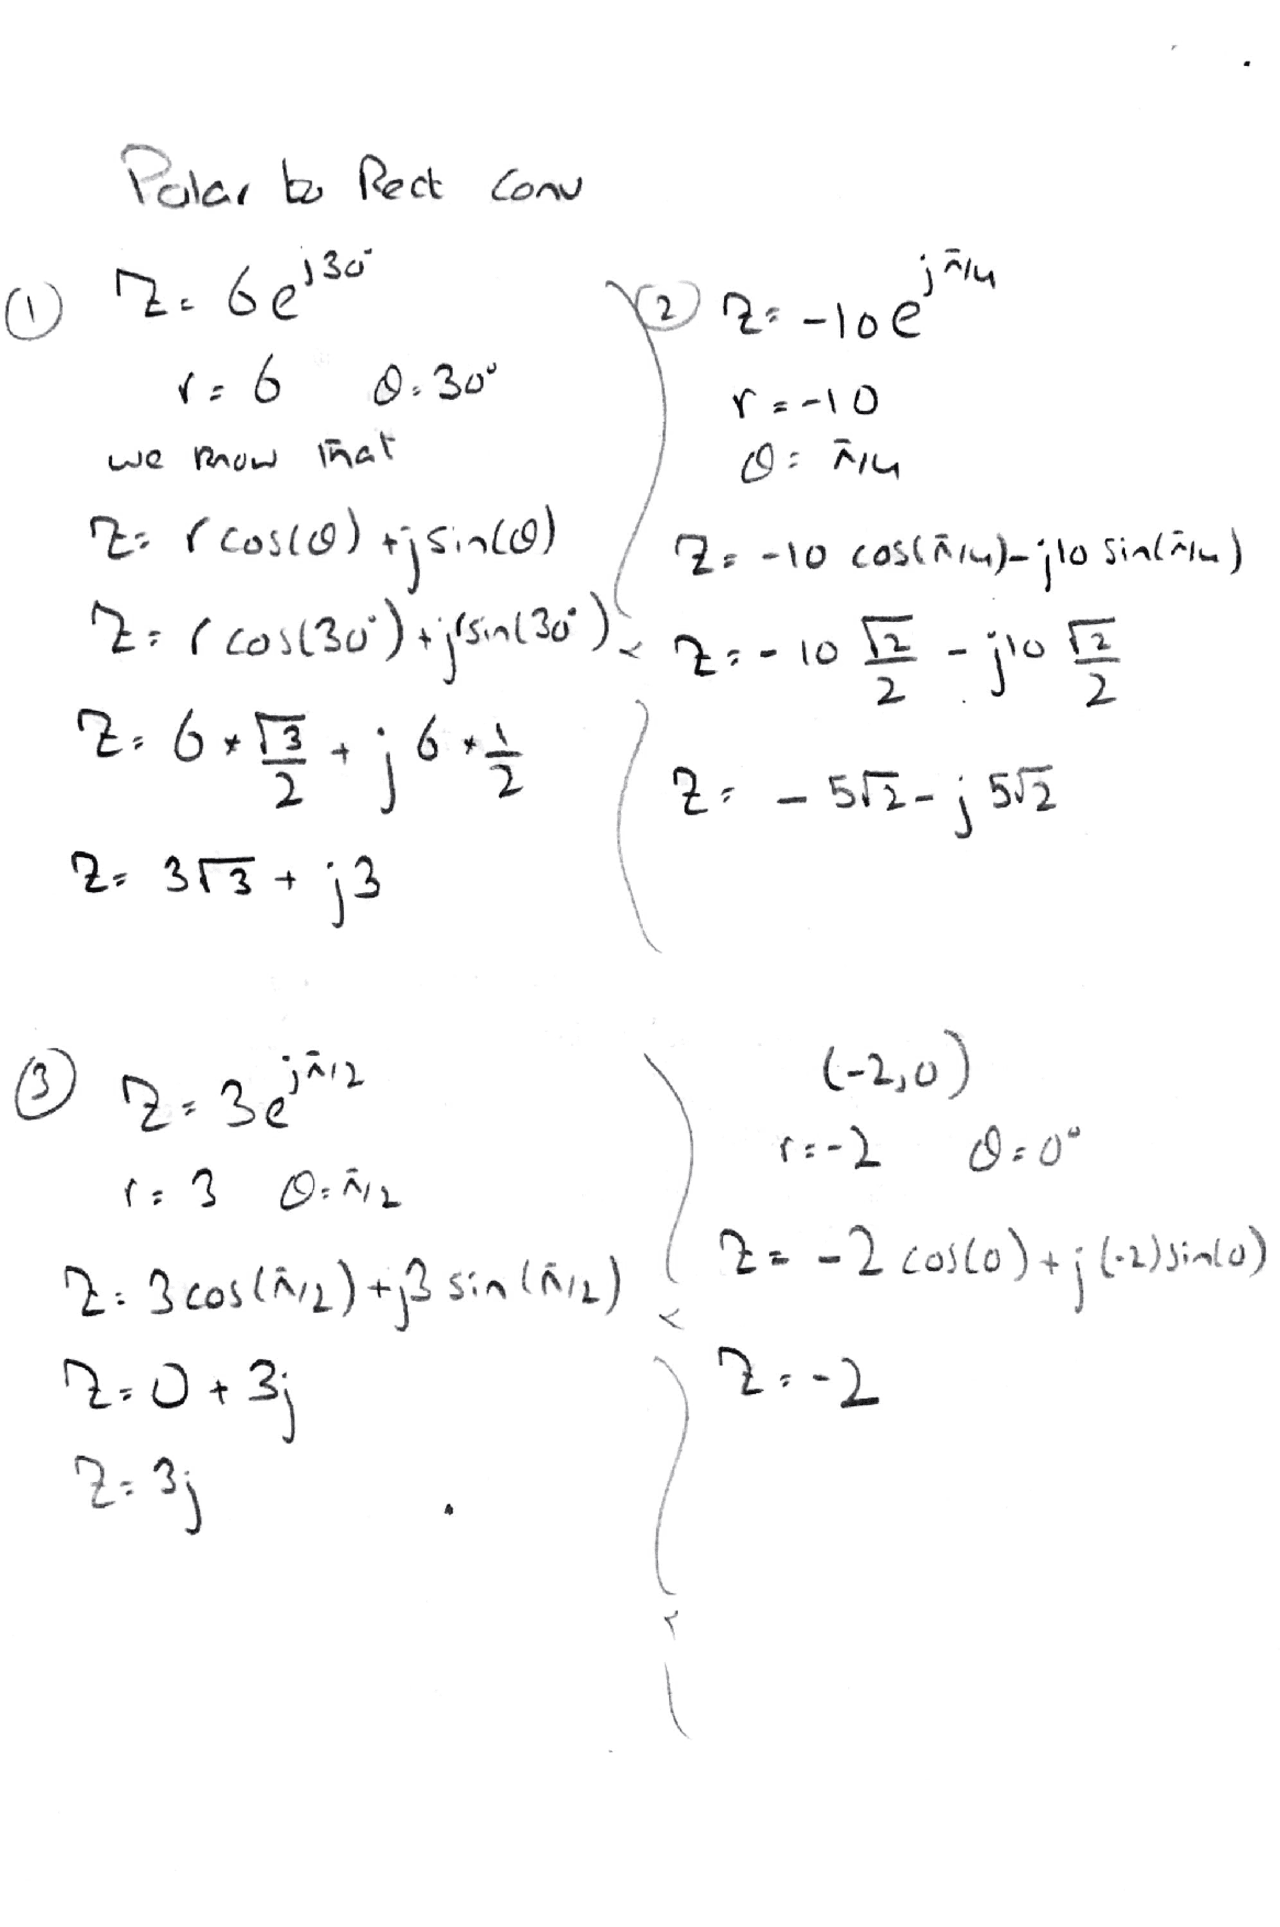 Polar to Rect Conv
① z = 6e^{j30°}
r = 6 θ = 30°
we know that
z = r cos(θ) + j sin(θ)
z = r cos(30°) + j r sin(30°)
z = 6 * √3/2 + j 6 * 1/2
z = 3√3 + j3
② z = -10e^{jπ/4}
r = -10
θ = π/4
z = -10 cos(π/4) - j10 sin(π/4)
z = -10 √2/2 - j10 √2/2
z = -5√2 - j 5√2
③ z = 3e^{jπ/2}
r = 3 θ = π/2
z = 3 cos(π/2) + j3 sin(π/2)
z = 0 + 3j
z = 3j
(-2,0)
r = -2 θ = 0°
z = -2 cos(0) + j(-2) sin(0)
z = -2